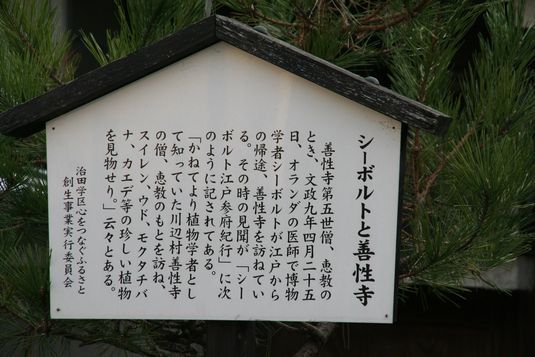 シーボルトと善性寺
善性寺第五世僧、恵教の
とき、文政九年四月二十五
日、オランダの医師で博物
学者シーボルトが江戸から
の帰途、善性寺を訪ねてい
る。その時の見聞が「シー
ボルト江戸参府紀行」に次
のように記されてある。
「かねてより植物学者とし
て知っていた川辺村善性寺
の僧、恵教のもとを訪ね、
スイレン、ウド、モクタチバ
ナ、カエデ等の珍しい植物
を見物せり。」云々とある。
治田学区心をつなぐふるさと
創生事業実行委員会